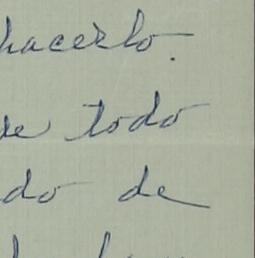 hacerlo.
de todo
do de